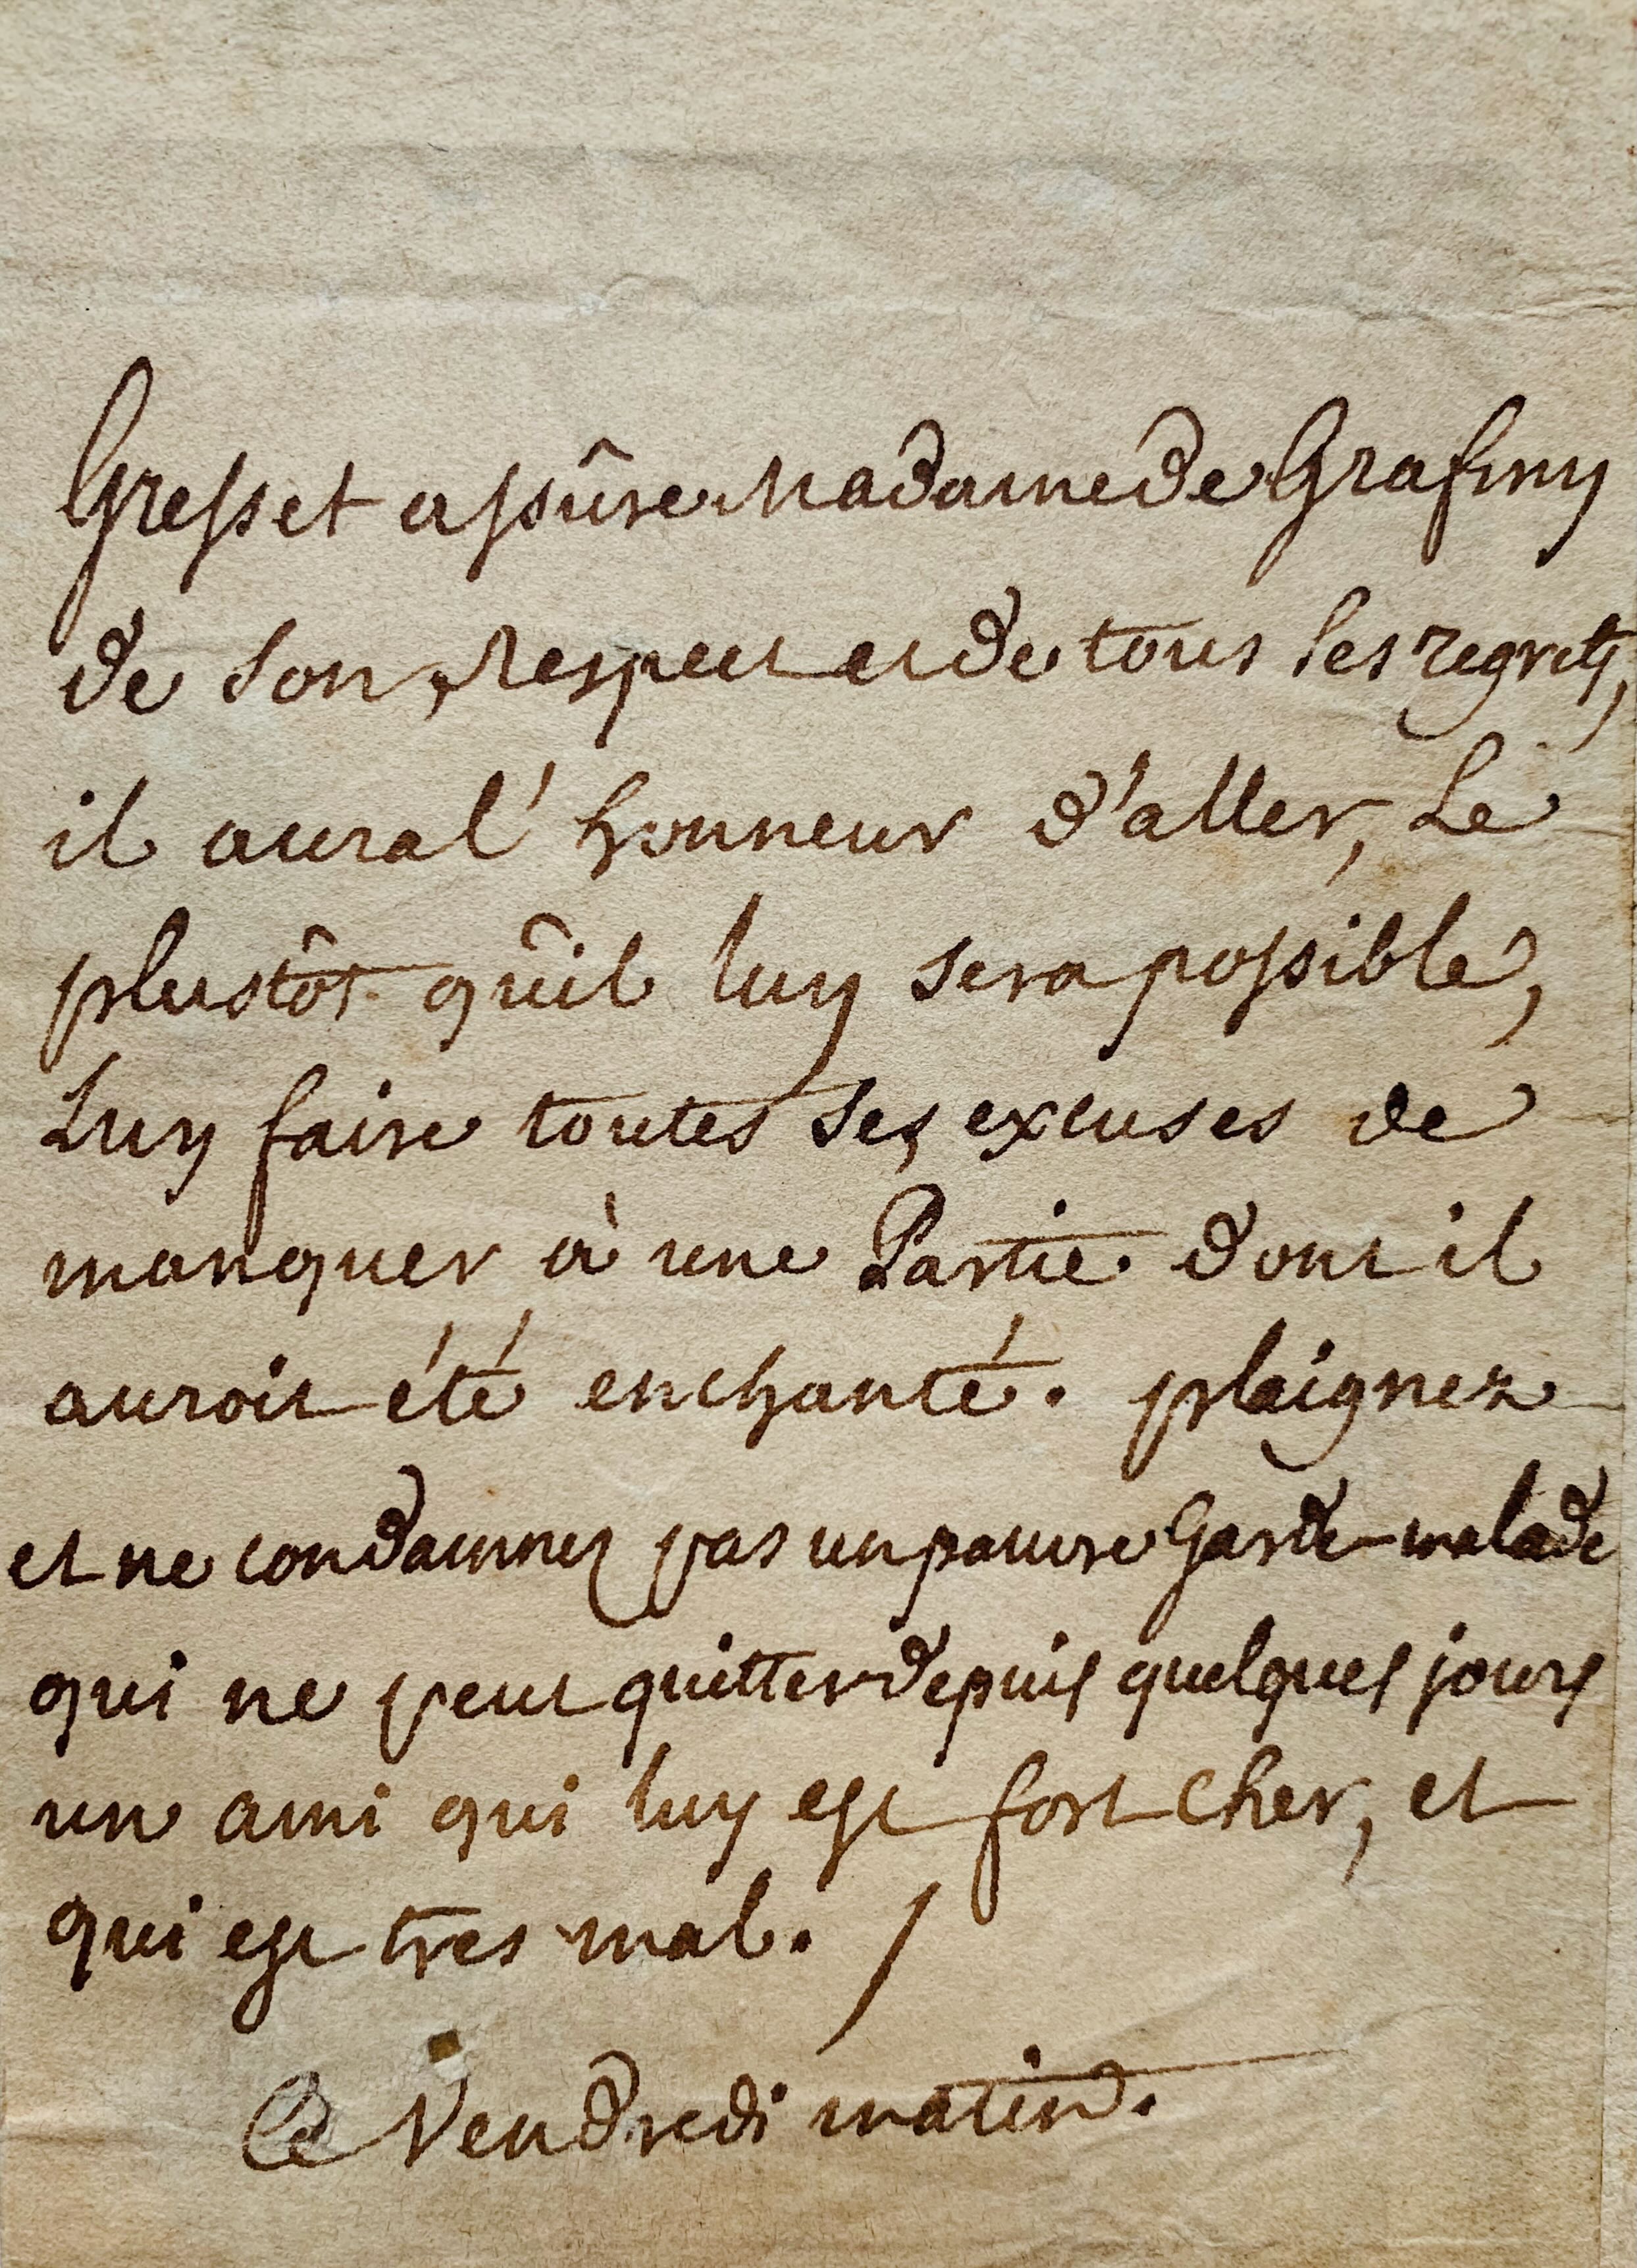 Gresset assûre Madame de Grafiny
de son respect et de tous ses regrets,
il aura l'honneur d'aller, Le
plustôt qu'il luy sera possible,
Luy faire toutes ses excuses de
manquer à une Partie dont il
auroit été enchanté. plaignez
et ne condamnez pas un pauvre Garde-malade
qui ne peut quitter depuis quelques jours
un ami qui luy est fort cher, et
qui est tres mal. /
Ce Vendredi matin.